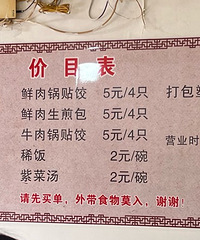 价目表
鲜肉锅贴饺 5元/4只 打包
鲜肉生煎包 5元/4只
牛肉锅贴饺 5元/4只
营业时
稀饭 2元/碗
紫菜汤 2元/碗
请先买单，外带食物莫入，谢谢！